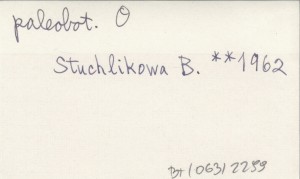 paleobot. O
Stuchlikowa B. **1962
B+/063/2299